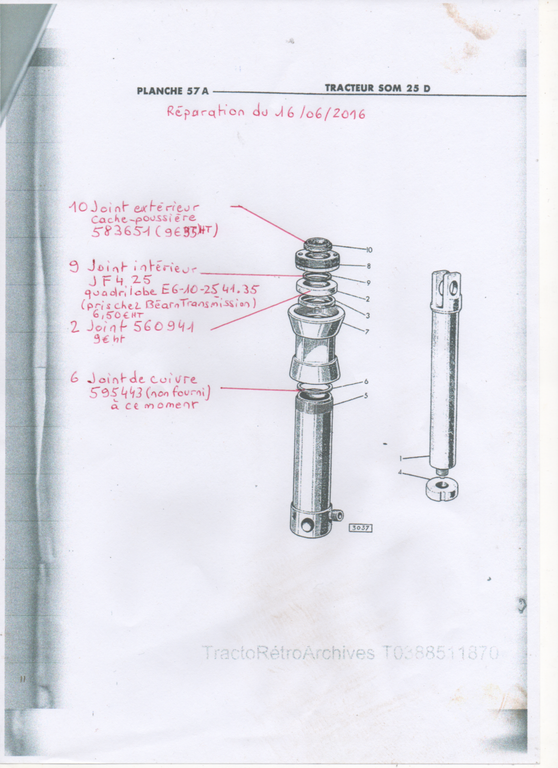 PLANCHE 57 A
TRACTEUR SOM 25 D
Réparation du 16/06/2016
10 Joint extérieur
Cache-poussière
583651 (9€ HT)
9 Joint intérieur
JF 4.25
quadrilobe E6-10-25 41.35
(pris chez Béarn Transmission)
6,50€ HT
2 Joint 560941
9€ ht
6 Joint de cuivre
595443 (non fourni)
à ce moment
10
8
9
2
3
7
6
5
1
4
3057
TractoRétroArchives T0388511870